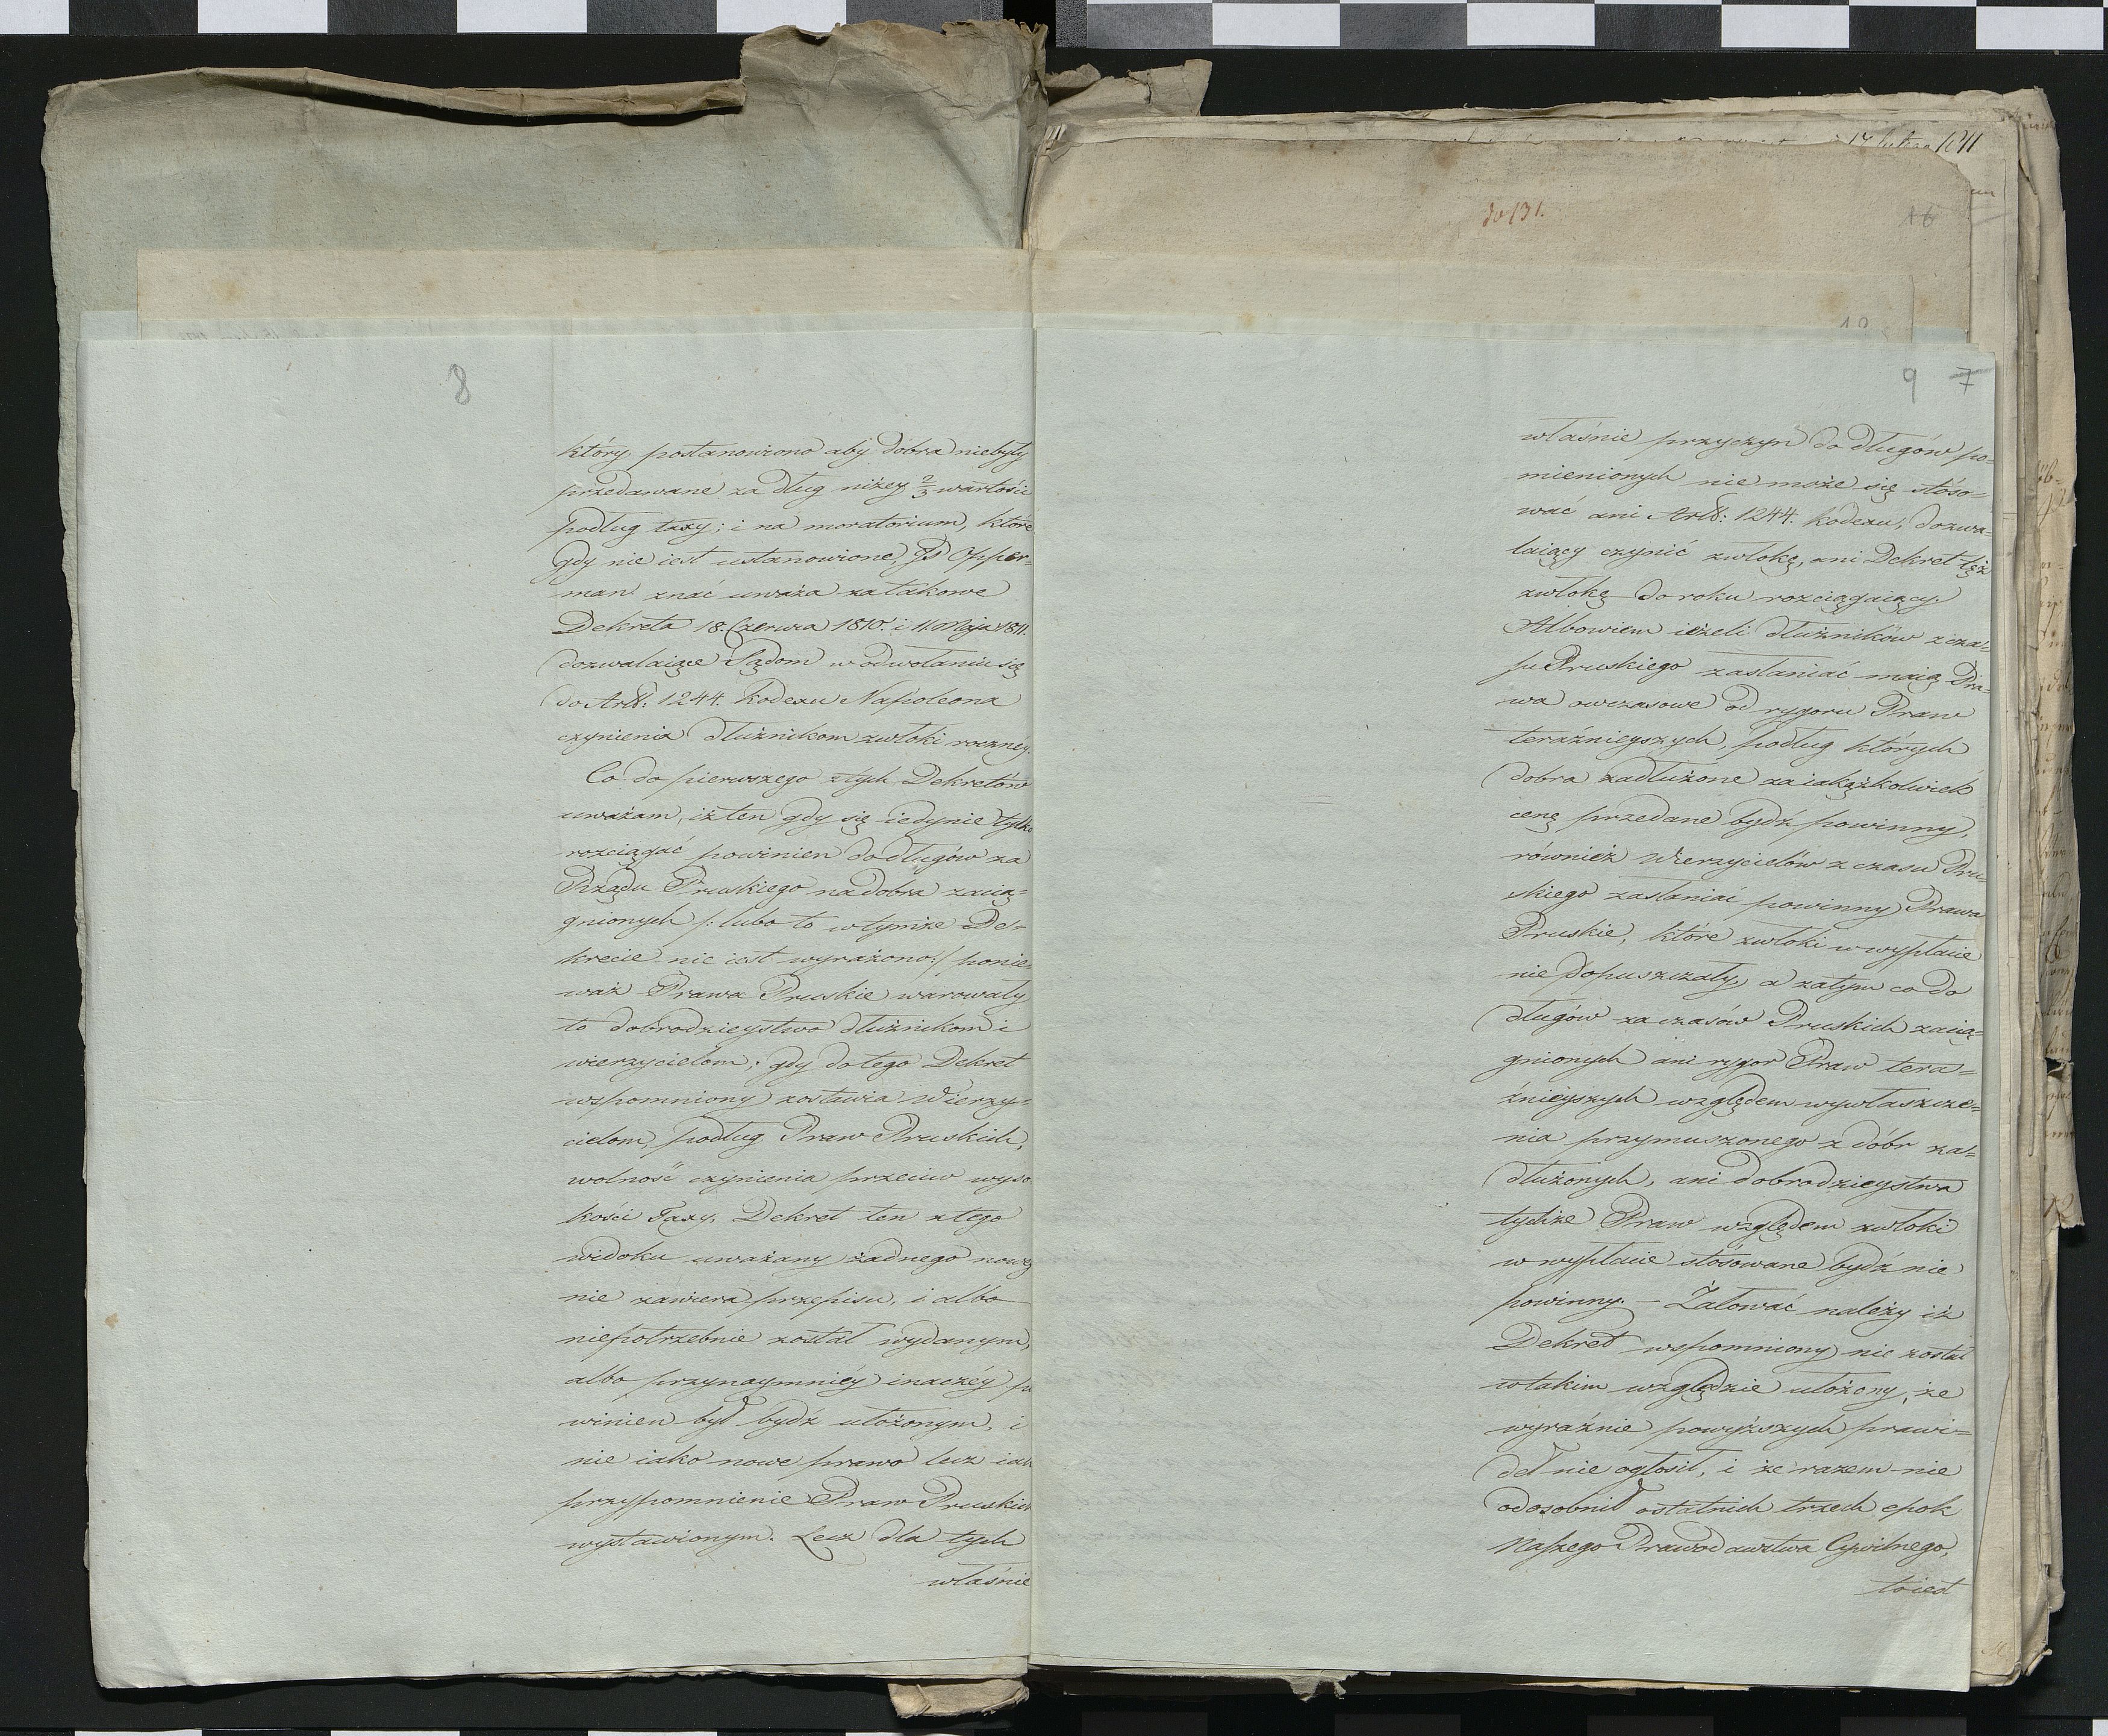 8
który postanowiono aby dobra niebyły
przedawane za dług niżey 2/3 wartości
podług taxy; i na moratorium, które
gdy nie iest ustanowione, JP Opper-
man znać uważa za takowe
Dekreta 18. Czerwca 1810. i 11. Maja 1811.
dozwalaiące Sądom w odwołaniu się
do Artt: 1244. Kodexu Napoleona
czynienia dłużnikom zwłoki roczney.
Co do pierwszego z tych Dekretów
uważam, iż ten gdy się iedynie tylko
rozciągać powinien do długów za
Rządu Pruskiego na dobra zacią-
gnionych /: lubo to w tymże De-
krecie nie iest wyrażono :/ ponie-
waż Prawa Pruskie warowały
to dobrodzieystwo dłużnikom i
wierzycielom; gdy do tego Dekret
wspomniony zostawia Wierzy-
cielom, podług Praw Pruskich,
wolność czynienia przeciw wyso
kości Taxy. Dekret ten z tego
widoku uważany żadnego noweg
nie zawiera przepisu, i albo
niepotrzebnie został wydanym,
albo przynaymniéy inaczéy po
winien był bydź ułożonym, i
nie iako nowe prawo lecz iak
przypomnienie Praw Pruskich
wystawionym. Lecz dla tych
właśnie
17 lutego 1811
do 131.
16
9 7
właśnie przyczyn do długów po-
mienionych nie może się stóso-
wać ani Artt: 1244. Kodexu, dozwa-
laiący czynić zwłokę, ani Dekret tęż
zwłokę do roku rozciągaiący.
Albowiem ieżeli dłużników z cza-
su Pruskiego zasłaniać maią Pra-
wa owczasowe od rygoru Praw
teraźnieyszych, podług których
dobra zadłużone za iakążkolwiek
cenę przedane bydź powinny,
również Wierzycielów z czasu Pru-
skiego zasłaniać powinny Prawa
Pruskie, które zwłoki w wypłacie
nie dopuszczały, a zatym co do
długów za czasów Pruskich zacią-
gnionych ani rygor Praw tera-
źnieyszych względem wywłaszcze-
nia przymuszonego z dóbr za-
dłużonych, ani dobrodzieystwa
tychże Praw względem zwłoki
w wypłacie stósowane bydź nie
powinny. – Żałować należy iż
Dekret wspomniony nie został
w takim względzie ułożony, że
wyraźnie powyższych prawi-
deł nie ogłosił, i że razem nie
odosobnił ostatnich trzech epok
Naszego Prawodawstwa Cywilnego,
toiest